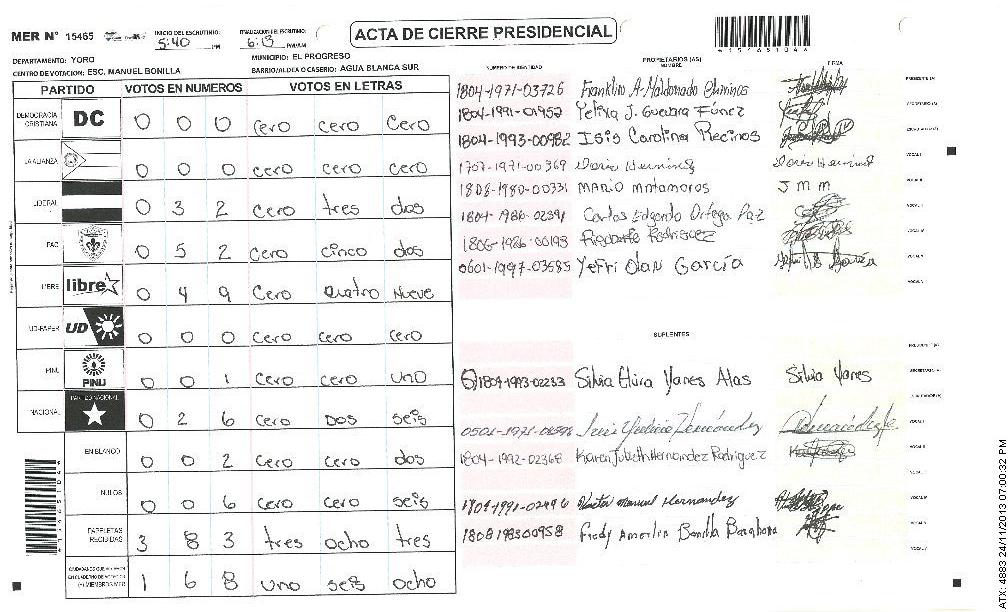 MER Nº 15465
INICIO DEL ESCRUTINIO: 5:40 PM
FINALIZACION DEL ESCRUTINIO: 6:13 PM/AM
ACTA DE CIERRE PRESIDENCIAL
DEPARTAMENTO: YORO
MUNICIPIO: EL PROGRESO
CENTRO DE VOTACION: ESC. MANUEL BONILLA
BARRIO/ALDEA O CASERIO: AGUA BLANCA SUR
PARTIDO VOTOS EN NUMEROS VOTOS EN LETRAS
DEMOCRACIA CRISTIANA DC 0 0 0 cero cero cero
LA ALIANZA 0 0 0 cero cero cero
LIBERAL 0 3 2 cero tres dos
PAC 0 5 2 cero cinco dos
LIBRE libre 0 4 9 cero cuatro nueve
UD-FAPER UD 0 0 0 cero cero cero
PINU PINU 0 0 1 cero cero uno
NACIONAL PARTIDO NACIONAL 0 2 6 cero dos seis
EN BLANCO 0 0 2 cero cero dos
NULOS 0 0 6 cero cero seis
PAPELETAS RECIBIDAS 3 8 3 tres ocho tres
CIUDADANOS QUE VOTARON EN CUADERNO DE VOTACION (+) MIEMBROS MER 1 6 8 uno seis ocho
NUMERO DE IDENTIDAD PROPIETARIOS (AS) NOMBRE FIRMA
1804-1971-03726 Franklin A. Maldonado
1804-1991-01952 Yelina J. Guevara Fúnez
1804-1993-00982 Isis Carolina Recinos
1707-1971-00369
1808-1980-00331 MARIO Matamoros J M M
1804-1986-02391 Carlos Edgardo Ortega Paz
1806-1986-00193 Rodriguez
0601-1997-03585 Yefri Olan García
SUPLENTES
1804-1993-02233 Silvia Elvira Yanes Silvia Yanes
1804-1992-02368 Karen Julieth Hernandez Rodriguez
Manuel Hernandez
1808198300958 Fredy Bonilla
ATX: 4883 24/11/2013 07:00:32 PM